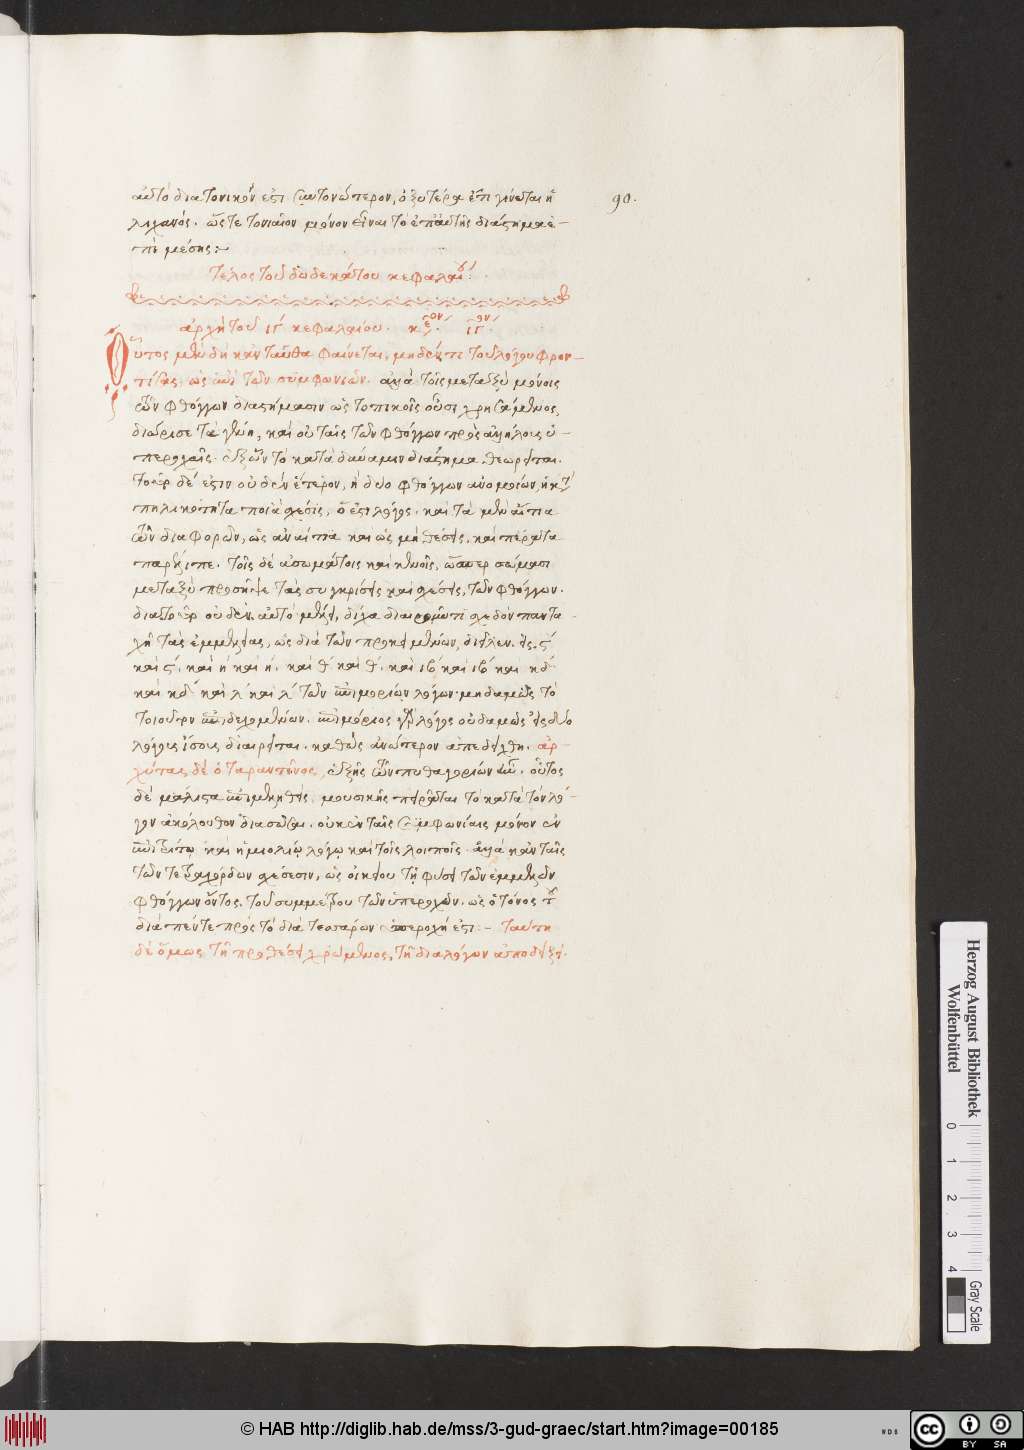 αὐτὸ διατονικὸν ἐστι συντονώτερον, ὀξυτέρα ἐπὶ γίνεται ἡ
λιχανός. ὥστε τονιαῖον μόνον εἶναι τὸ ἐπ αὐτῆς διάστημα ἐ-
πὶ μέσης:~
τέλος τοῦ δωδεκάτου κεφαλαίου.
ἀρχὴ τοῦ ιγ κεφαλαίου. κε ον. ιγ ον.
Οὗτος μὲν δὴ κἀνταῦθα φαίνεται, μηδέν τι τοῦ λόγου φρον-
τίσας, ὡς ἐπὶ τῶν συμφωνιῶν. ἀλλὰ τοῖς μεταξὺ μόνοις
τῶν φθόγγων διαστήμασιν ὡς τοπικοῖς οὖσι χρησάμενος,
διώρισε τὰ γένη, καὶ οὐ ταῖς τῶν φθόγγων πρὸς ἀλλήλους ὑ-
περοχαῖς. ἐξ ὧν τὸ κατὰ δύναμιν διάστημα θεωρεῖται.
τὸ γάρ δέ ἐστιν οὐδὲν ἕτερον, ἢ δύο φθόγγων ἀνομοίων, ἡ κτ
πηλικότητα ποιὰ σχέσις, ὅ ἐστι λόγος. καὶ τὰ μὲν αἴτια
τῶν διαφορῶν, ὡς ἀναίτια καὶ ὡς μὴ θέσεις, καὶ πέρατα
παρῆλιπε. τοῖς δὲ ἀσωμάτοις καὶ κενοῖς, ὥσπερ σώμασι
μεταξὺ προσῆψε τὰς συγκρίσεις καὶ σχέσεις, τῶν φθόγγων.
διατοῦτο γὰρ οὐδὲν αὐτὸ μέλει, δίχα διαιροῦντι σχεδὸν παντα-
χῆ τὰς ἐμμελείας, ὡς διὰ τῶν προκειμένων, διεῖλεν. εἰς ϛ
καὶ ϛ. καὶ η καὶ η. καὶ θ καὶ θ. καὶ ιβ καὶ ιβ καὶ κδ
καὶ κδ καὶ λ καὶ λ τῶν ἐπιμορίων λόγων. μηδαμῶς τὸ
τοιοῦτον ἐπιδεχομένων. ἐπιμόριος γὰρ λόγος οὐδαμῶς εἰς δύο
λόγους ἴσους διαιρεῖται. καθὼς ἀνώτερον ἀπεδείχθη. ἀρ-
χύτας δὲ ὁ ταραντῖνος, ἐξῆς τῶν πυθαγορείων ἐστὶν. οὗτος
δὲ μάλιστα ἐπιμεληθεὶς μουσικῆς πειρᾶται τὸ κατὰ τὸν λό-
γον ἀκόλουθον διασῶσαι. οὐκ ἐν ταῖς συμφωνίαις μόνον ἐν
ἐπιτρίτῳ καὶ ἡμιολίῳ λόγῳ καὶ τοῖς λοιποῖς. ἀλλὰ κἀν ταῖς
τῶν τετραχόρδων σχέσεσιν, ὡς οἰκείου τῇ φύσει τῶν ἐμμελῶν
φθόγγων ὄντος, τοῦ συμμέτρου τῶν ὑπεροχῶν. ὡς ὁ τόνος τοῦ
διὰ πέντε πρὸς τὸ διὰ τεσσάρων ὑπεροχή ἐστι:- ταύτῃ
δὲ ὅμως τῇ προθέσει χρώμενος, τῇ διὰ λόγων ἀποδείξει.
90.
Herzog August Bibliothek
Wolfenbüttel
0 1 2 3 4
Gray Scale
© HAB http://diglib.hab.de/mss/3-gud-graec/start.htm?image=00185
cc BY SA